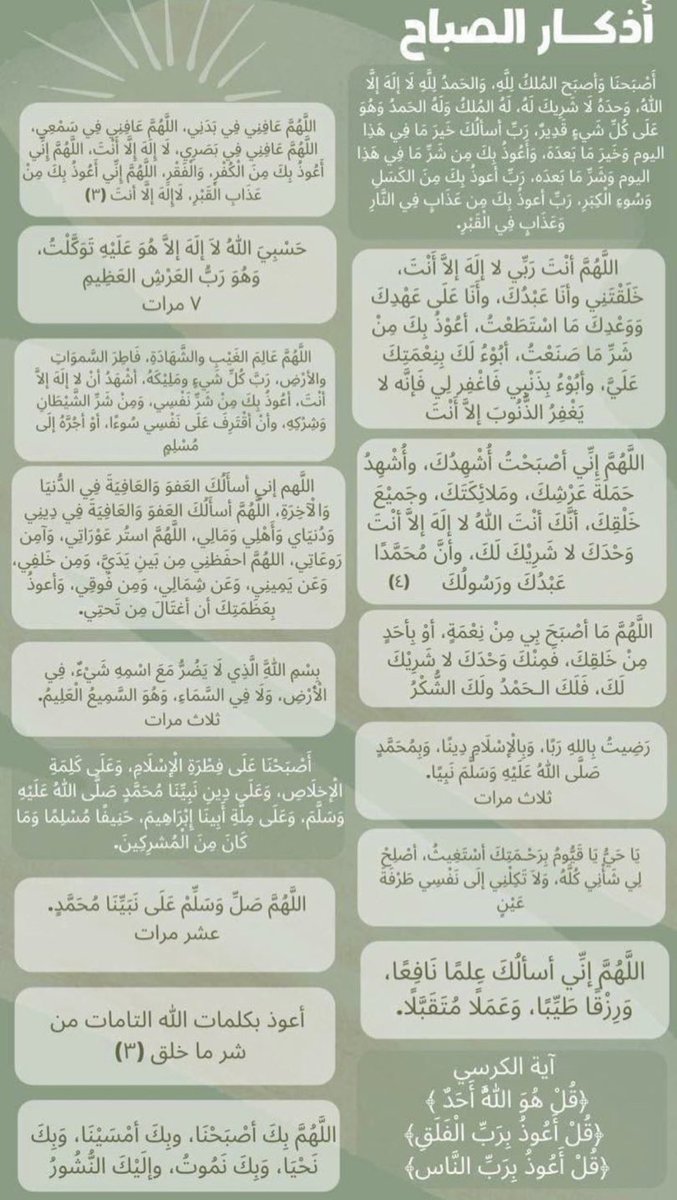 أذكــار الصباح
أَصْبَحنَا وَأصبَح المُلكُ لِلَّهِ، وَالحَمدُ لِلَّهِ لَا إلَهَ إلَّا
اللهُ، وَحدَهُ لَا شَرِيكَ لَهُ، لَهُ المُلكُ وَلَهُ الحَمدُ وَهُوَ
عَلَى كُلِّ شَيءٍ قَدِيرٌ، رَبِّ أسألُكَ خَيرَ مَا فِي هَذَا
اليوم وَخَيرَ مَا بَعدَهُ، وَأعُوذُ بِكَ مِن شَرِّ مَا فِي هَذَا
اليوم وَشَرِّ مَا بَعدَه، رَبِّ أعوذُ بِكَ مِنَ الكَسَلِ
وَسُوءِ الكِبَرِ، رَبِّ أعوذُ بِكَ مِن عَذَابٍ فِي النَّارِ
وَعَذَابٍ فِي الْقَبْرِ.
اللَّهُمَّ أَنْتَ رَبِّي لا إلَهَ إلاَّ أَنْتَ،
خَلَقْتَنِي وأَنَا عَبْدُكَ، وأَنَا عَلَى عَهْدِكَ
وَوَعْدِكَ مَا اسْتَطَعْتُ، أعُوْذُ بِكَ مِنْ
شَرِّ مَا صَنَعْتُ، أبُوْءُ لَكَ بِنِعْمَتِكَ
عَلَيَّ، وأَبُوْءُ بِذَنْبِي فَاغْفِر لِي فَإنَّه لا
يَغْفِرُ الذُّنُوبَ إلاَّ أَنْتَ
اللَّهُمَّ إِنِّي أَصْبَحْتُ أُشْهِدُكَ، وَأُشْهِدُ
حَمَلَةَ عَرْشِكَ، وَمَلائِكَتَكَ، وجَمِيْعَ
خَلْقِكَ، أنَّكَ أنْتَ اللهُ لا إلَهَ إلاَّ أنْتَ
وَحْدَكَ لا شَرِيْكَ لَكَ، وأنَّ مُحَمَّدًا
عَبْدُكَ ورَسُولُكَ (٤)
اللَّهُمَّ مَا أصْبَحَ بِي مِنْ نِعْمَةٍ، أوْ بِأحَدٍ
مِنْ خَلقِكَ، فَمِنْكَ وَحْدَكَ لا شَرِيْكَ
لَكَ، فَلَكَ الـحَمْدُ ولَكَ الشُّكْرُ
رَضِيتُ بِاللهِ رَبًا، وَبِالْإسْلَامِ دِينًا، وَبِمُحَمَّدٍ
صَلَّى اللهُ عَلَيْهِ وَسَلَّمَ نَبِيًا.
ثلاث مرات
يَا حَيُّ يَا قَيُّومُ بِرَحْـمَتِكَ أسْتَغِيثُ، أصْلِحْ
لِي شَأنِي كُلَّهُ، وَلاَ تَكِلْنِي إلَى نَفْسِي طَرْفَةَ
عَيْنٍ
اللَّهُمَّ إنِّي أسألُكَ عِلمًا نَافِعًا،
وَرِزْقًا طَيِّبًا، وَعَمَلًا مُتَقَبَّلًا.
آية الكرسي
﴿قُلْ هُوَ اللهُ أَحَدٌ ﴾
﴿قُلْ أَعُوذُ بِرَبِّ الْفَلَقِ﴾
﴿قُلْ أَعُوذُ بِرَبِّ النَّاس﴾
اللَّهُمَّ عَافِنِي فِي بَدَنِي، اللَّهُمَّ عَافِنِي فِي سَمْعِي،
اللَّهُمَّ عَافِنِي فِي بَصَرِي، لَا إلَهَ إلَّا أَنْتَ، اللَّهُمَّ إِنِّي
أَعُوذُ بِكَ مِنَ الْكُفْرِ، وَالْفَقْرِ، اللَّهُمَّ إِنِّي أَعُوذُ بِكَ مِنْ
عَذَابِ القَبْرِ، لَاإلَهَ إلَّا أنتَ (٣)
حَسْبِيَ اللهُ لاَ إلَهَ إلاَّ هُوَ عَلَيْهِ تَوَكَّلْتُ،
وَهُوَ رَبُّ العَرْشِ العَظِيمِ
٧ مرات
اللَّهُمَّ عَالِمَ الغَيْبِ والشَّهَادَةِ، فَاطِرَ السَّموَاتِ
والأرْضِ، رَبَّ كُلِّ شَيءٍ ومَلِيْكَهُ، أشْهَدُ أنْ لا إلَهَ إلاَّ
أنْتَ، أعُوذُ بِكَ مِنْ شَرِّ نَفْسِي، وَمِنْ شَرِّ الشَّيْطَانِ
وَشِرْكِهِ، وأنْ أقْتَرِفَ عَلَى نَفْسِي سُوءًا، أوْ أجُرَّهُ إلَى
مُسْلِمٍ
اللَّهم إني أسأَلُكَ العَفوَ وَالعَافِيَةَ فِي الدُّنيَا
وَالْآخِرَةِ، اللَّهُمَّ أسأَلُكَ العَفوَ وَالعَافِيَةَ فِي دِينِي
وَدُنيَاي وَأَهْلِي وَمَالِي، اللَّهُمَّ استُر عَوْرَاتِي، وَآمِن
رَوعَاتِي، اللهمَّ احفَظنِي مِن بَينِ يَدَيَّ، وَمِن خَلفِي،
وَعَن يَمِينِي، وَعَن شِمَالِي، وَمِن فَوقِي، وَأعوذُ
بِعَظَمَتِكَ أن أغتَالَ مِن تَحتِي.
بِسْمِ اللهِ الَّذِي لَا يَضُرُّ مَعَ اسْمِهِ شَيْءٌ، فِي
الْأَرْضِ، وَلَا فِي السَّمَاءِ، وَهُوَ السَّمِيعُ العَلِيمُ.
ثلاث مرات
أَصْبَحْنَا عَلَى فِطْرَةِ الْإسْلَامِ، وَعَلَى كَلِمَةِ
الْإخلَاصِ، وَعَلَى دِينِ نَبِيِّنَا مُحَمَّدٍ صَلَّى اللهُ عَلَيْهِ
وَسَلَّمَ، وَعَلَى مِلَّةِ أبِينَا إبْرَاهِيمَ، حَنِيفًا مُسْلِمًا وَمَا
كَانَ مِنَ الْمُشرِكِينَ.
اللَّهُمَّ صَلِّ وَسَلِّمْ عَلَى نَبَيِّنَا مُحَمَّدٍ.
عشر مرات
أعوذ بكلمات الله التامات من
شر ما خلق (٣)
اللَّهُمَّ بِكَ أَصْبَحْنَا، وبِكَ أمْسَيْنَا، وَبِكَ
نَحْيَا، وَبِكَ نَمُوتُ، وإلَيْكَ النُّشُورُ